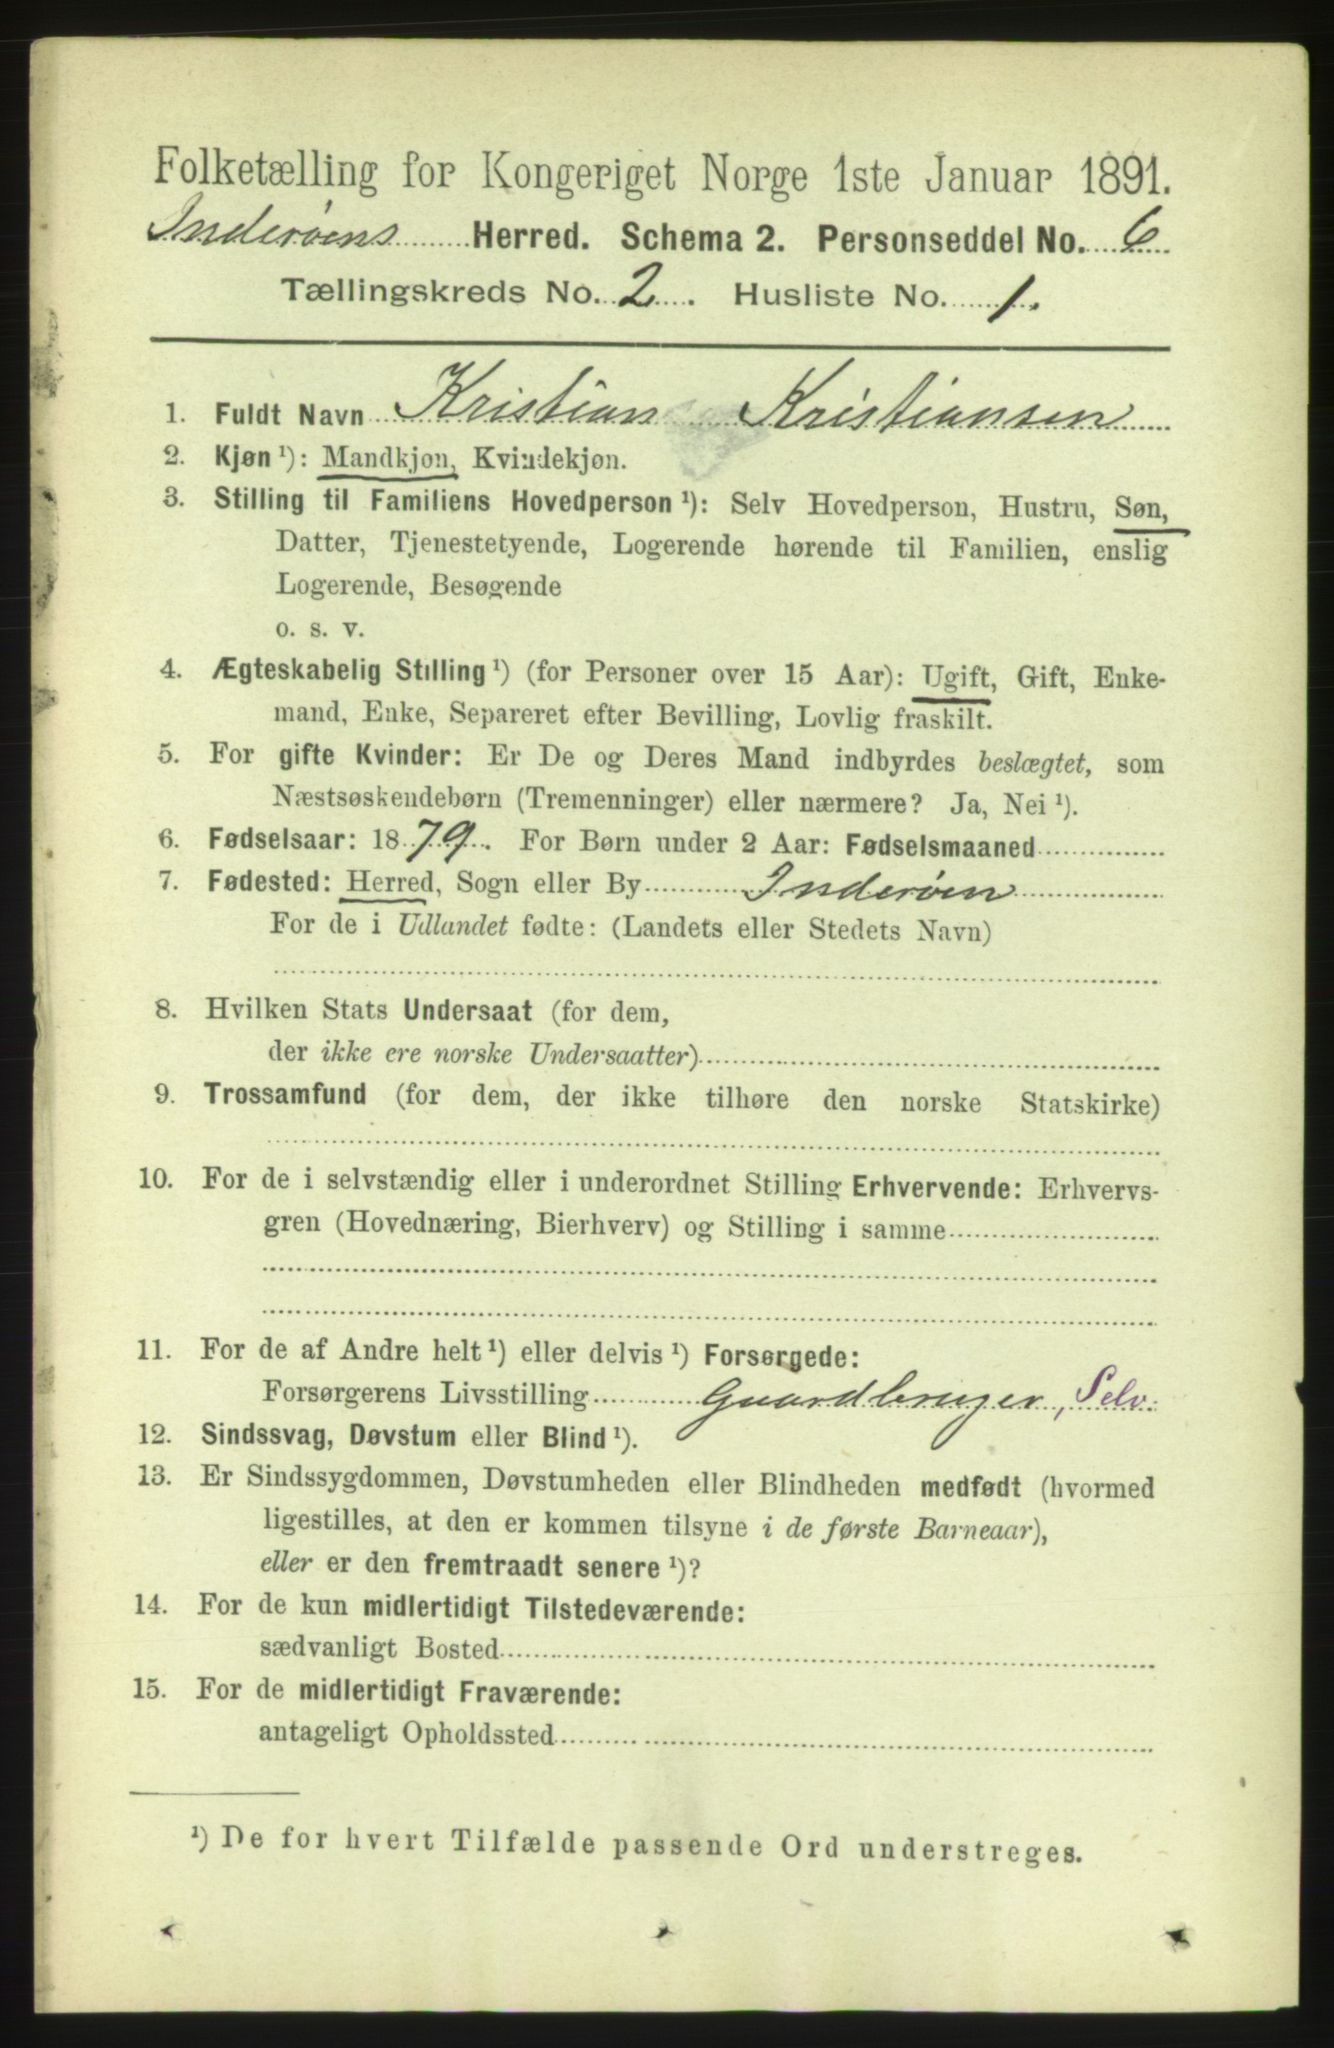 Folketælling for Kongeriget Norge 1ste Januar 1891.
Inderøens Herred. Schema 2. Personseddel No. 6
Tællingskreds No. 2. Husliste No. 1.
1. Fuldt Navn Kristian Kristiansen
2. Kjøn ¹): Mandkjøn, Kvindekjøn.
3. Stilling til Familiens Hovedperson ¹): Selv Hovedperson, Hustru, Søn,
Datter, Tjenestetyende, Logerende hørende til Familien, enslig
Logerende, Besøgende
o. s. v.
4. Ægteskabelig Stilling ¹) (for Personer over 15 Aar): Ugift, Gift, Enke-
mand, Enke, Separeret efter Bevilling, Lovlig fraskilt.
5. For gifte Kvinder: Er De og Deres Mand indbyrdes beslægtet, som
Næstsøskendebørn (Tremenninger) eller nærmere? Ja, Nei ¹).
6. Fødselsaar: 1879. For Børn under 2 Aar: Fødselsmaaned
7. Fødested: Herred, Sogn eller By Inderøen
For de i Udlandet fødte: (Landets eller Stedets Navn)
8. Hvilken Stats Undersaat (for dem,
der ikke ere norske Undersaatter)
9. Trossamfund (for dem, der ikke tilhøre den norske Statskirke)
10. For de i selvstændig eller i underordnet Stilling Erhvervende: Erhvervs-
gren (Hovednæring, Bierhverv) og Stilling i samme
11. For de af Andre helt ¹) eller delvis ¹) Forsørgede:
Forsørgerens Livsstilling Gaardbruger, Selv.
12. Sindssvag, Døvstum eller Blind ¹).
13. Er Sindssygdommen, Døvstumheden eller Blindheden medfødt (hvormed
ligestilles, at den er kommen tilsyne i de første Barneaar),
eller er den fremtraadt senere ¹)?
14. For de kun midlertidigt Tilstedeværende:
sædvanligt Bosted
15. For de midlertidigt Fraværende:
antageligt Opholdssted
¹) De for hvert Tilfælde passende Ord understreges.